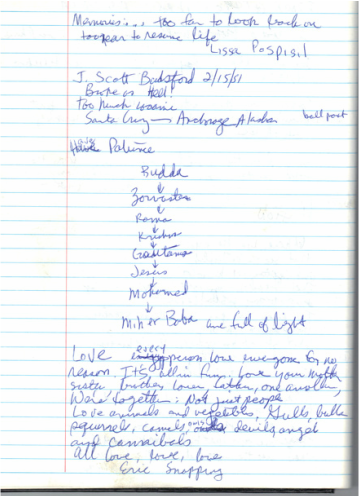 Memories..., too far to look back on
too near to resume life
Lissa Pospisil
J. Scott 2/15/51
Broke as Hell!
too much
Santa Cruz — Anchorage Alaska
Patience
Budda
↓
Zoroaster
↓
Rama
↓
Krishna
↓
Gautama
↓
Jesus
↓
Mohamed
↓
Baba are full of light
Love every person love everyone for no
reason. It's all in fun. Love your mother
sister brother lover, one another,
We're together: Not just people
Love animals and vegetables, Gulls, bulls
squirrels, camels, devils angels
and cannibals
All love, love, love
Eric